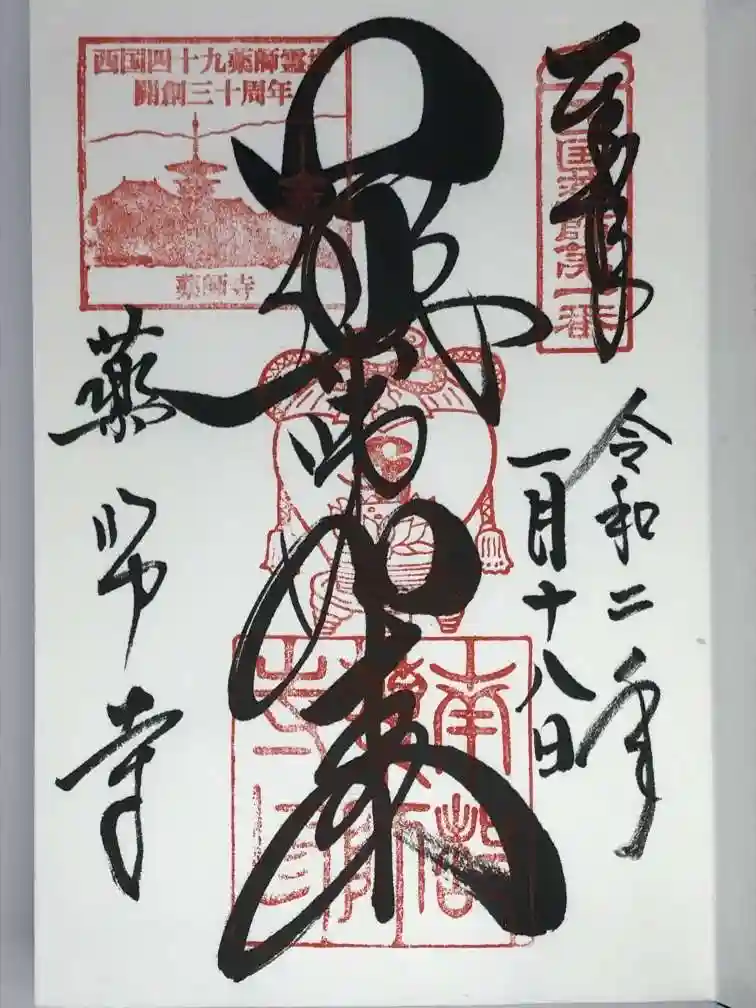 奉拝
西国薬師第一番
令和二年
一月十八日
如来
西国四十九薬師霊場
開創三十周年
薬師寺
薬師寺